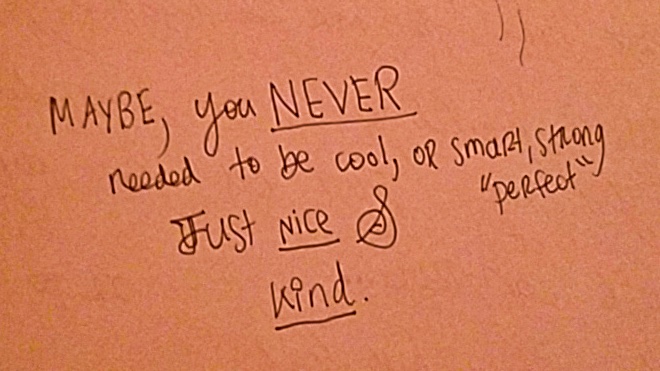 MAYBE, you NEVER
needed to be cool, or smart, strong
"perfect"
Just nice &
kind.